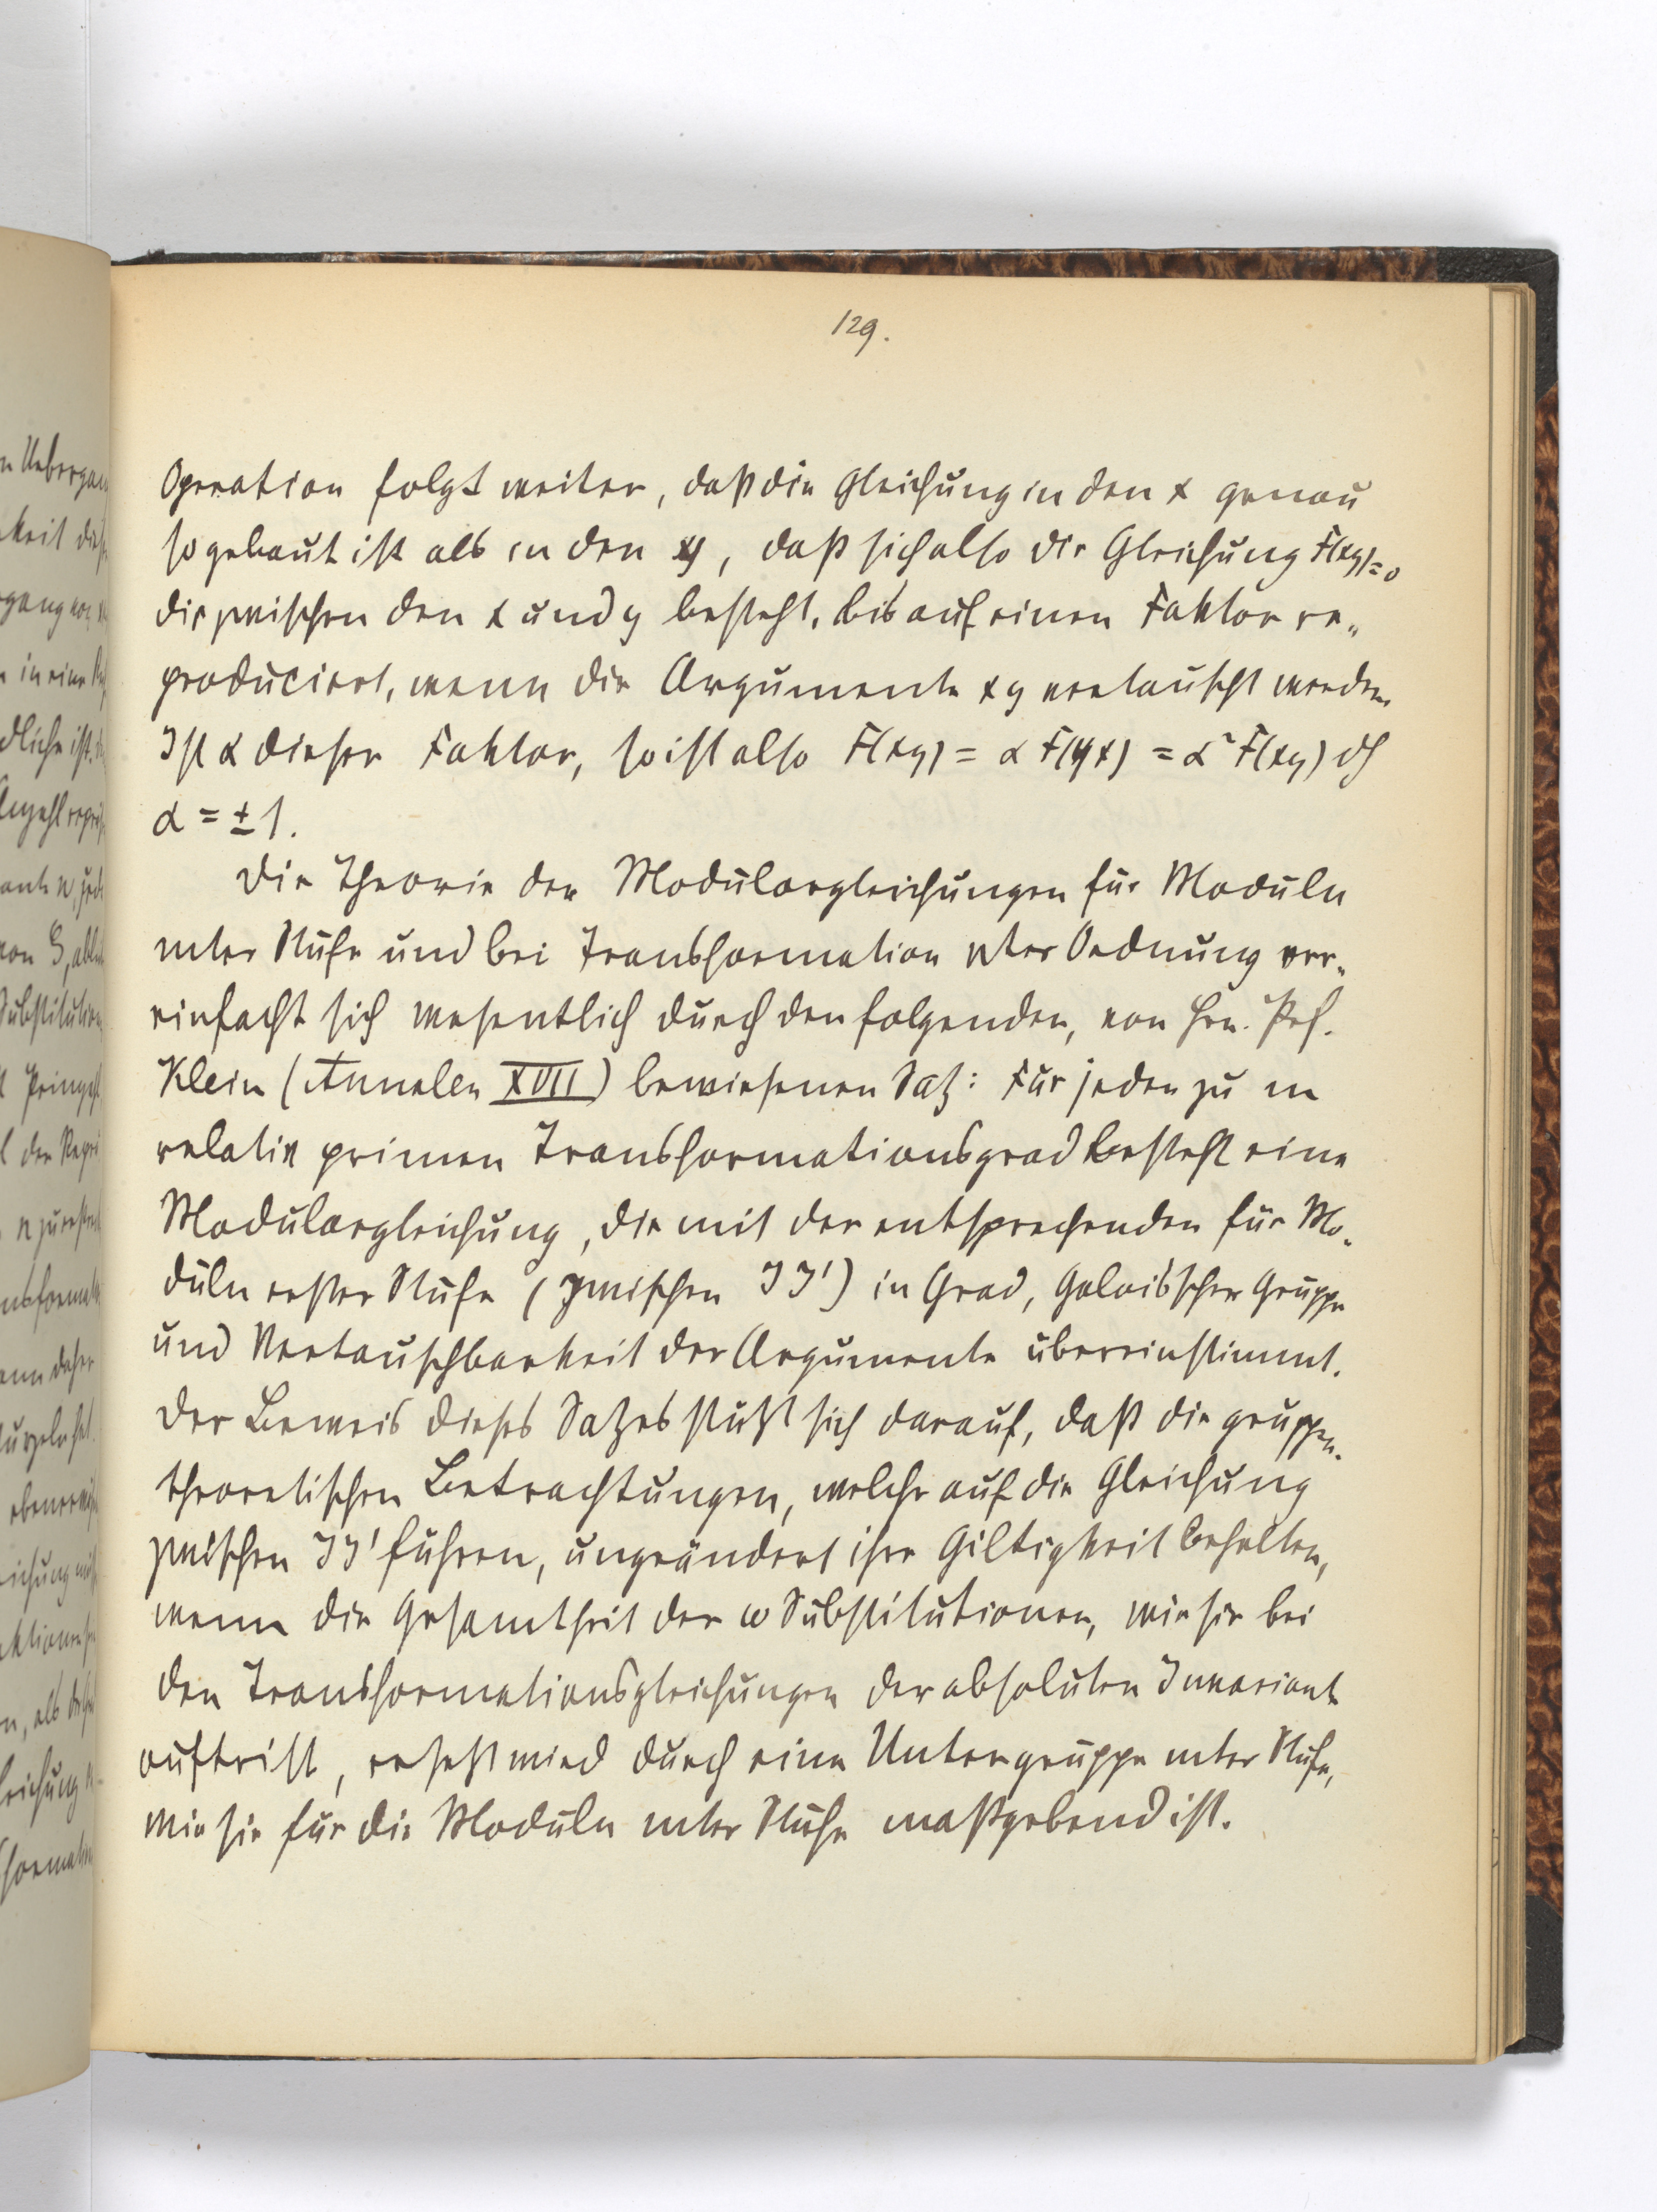 129.
Operation folgt weiter, daß die Gleichung in den x genau
so gebaut ist als in den y, daß sich also die Gleichung F(xy)=0
die zwischen den x und y besteht, bis auf einen Faktor re-
produciert, wenn die Argumente xy vertauscht werden.
Ist α dieser Faktor, so ist also F(xy) = α F(yx) = α² F(xy) dh
α = ± 1.
Die Theorie der Modulargleichungen für Moduln
mter Stufe und bei Transformation nter Ordnung ver-
einfacht sich wesentlich durch den folgenden, von Hrn. Prf.
Klein (Annalen XVII) bewiesenen Satz: Für jeden zu m
relativ primen Transformationsgrad besteht eine
Modulargleichung, die mit der entsprechenden für Mo-
duln erster Stufe (zwischen J J') in Grad, Galoisscher Gruppe
und Vertauschbarkeit der Argumente übereinstimmt.
Der Beweis dieses Satzes stützt sich darauf, daß die gruppen-
theoretischen Betrachtungen, welche auf die Gleichung
zwischen J J' führen, ungeändert ihre Giltigkeit behalten,
wenn die Gesamtheit der ω Substitutionen, wie sie bei
den Transformationsgleichungen der absoluten Invariante
auftritt, ersetzt wird durch eine Untergruppe mter Stufe,
wie sie für die Moduln mter Stufe maßgebend ist.